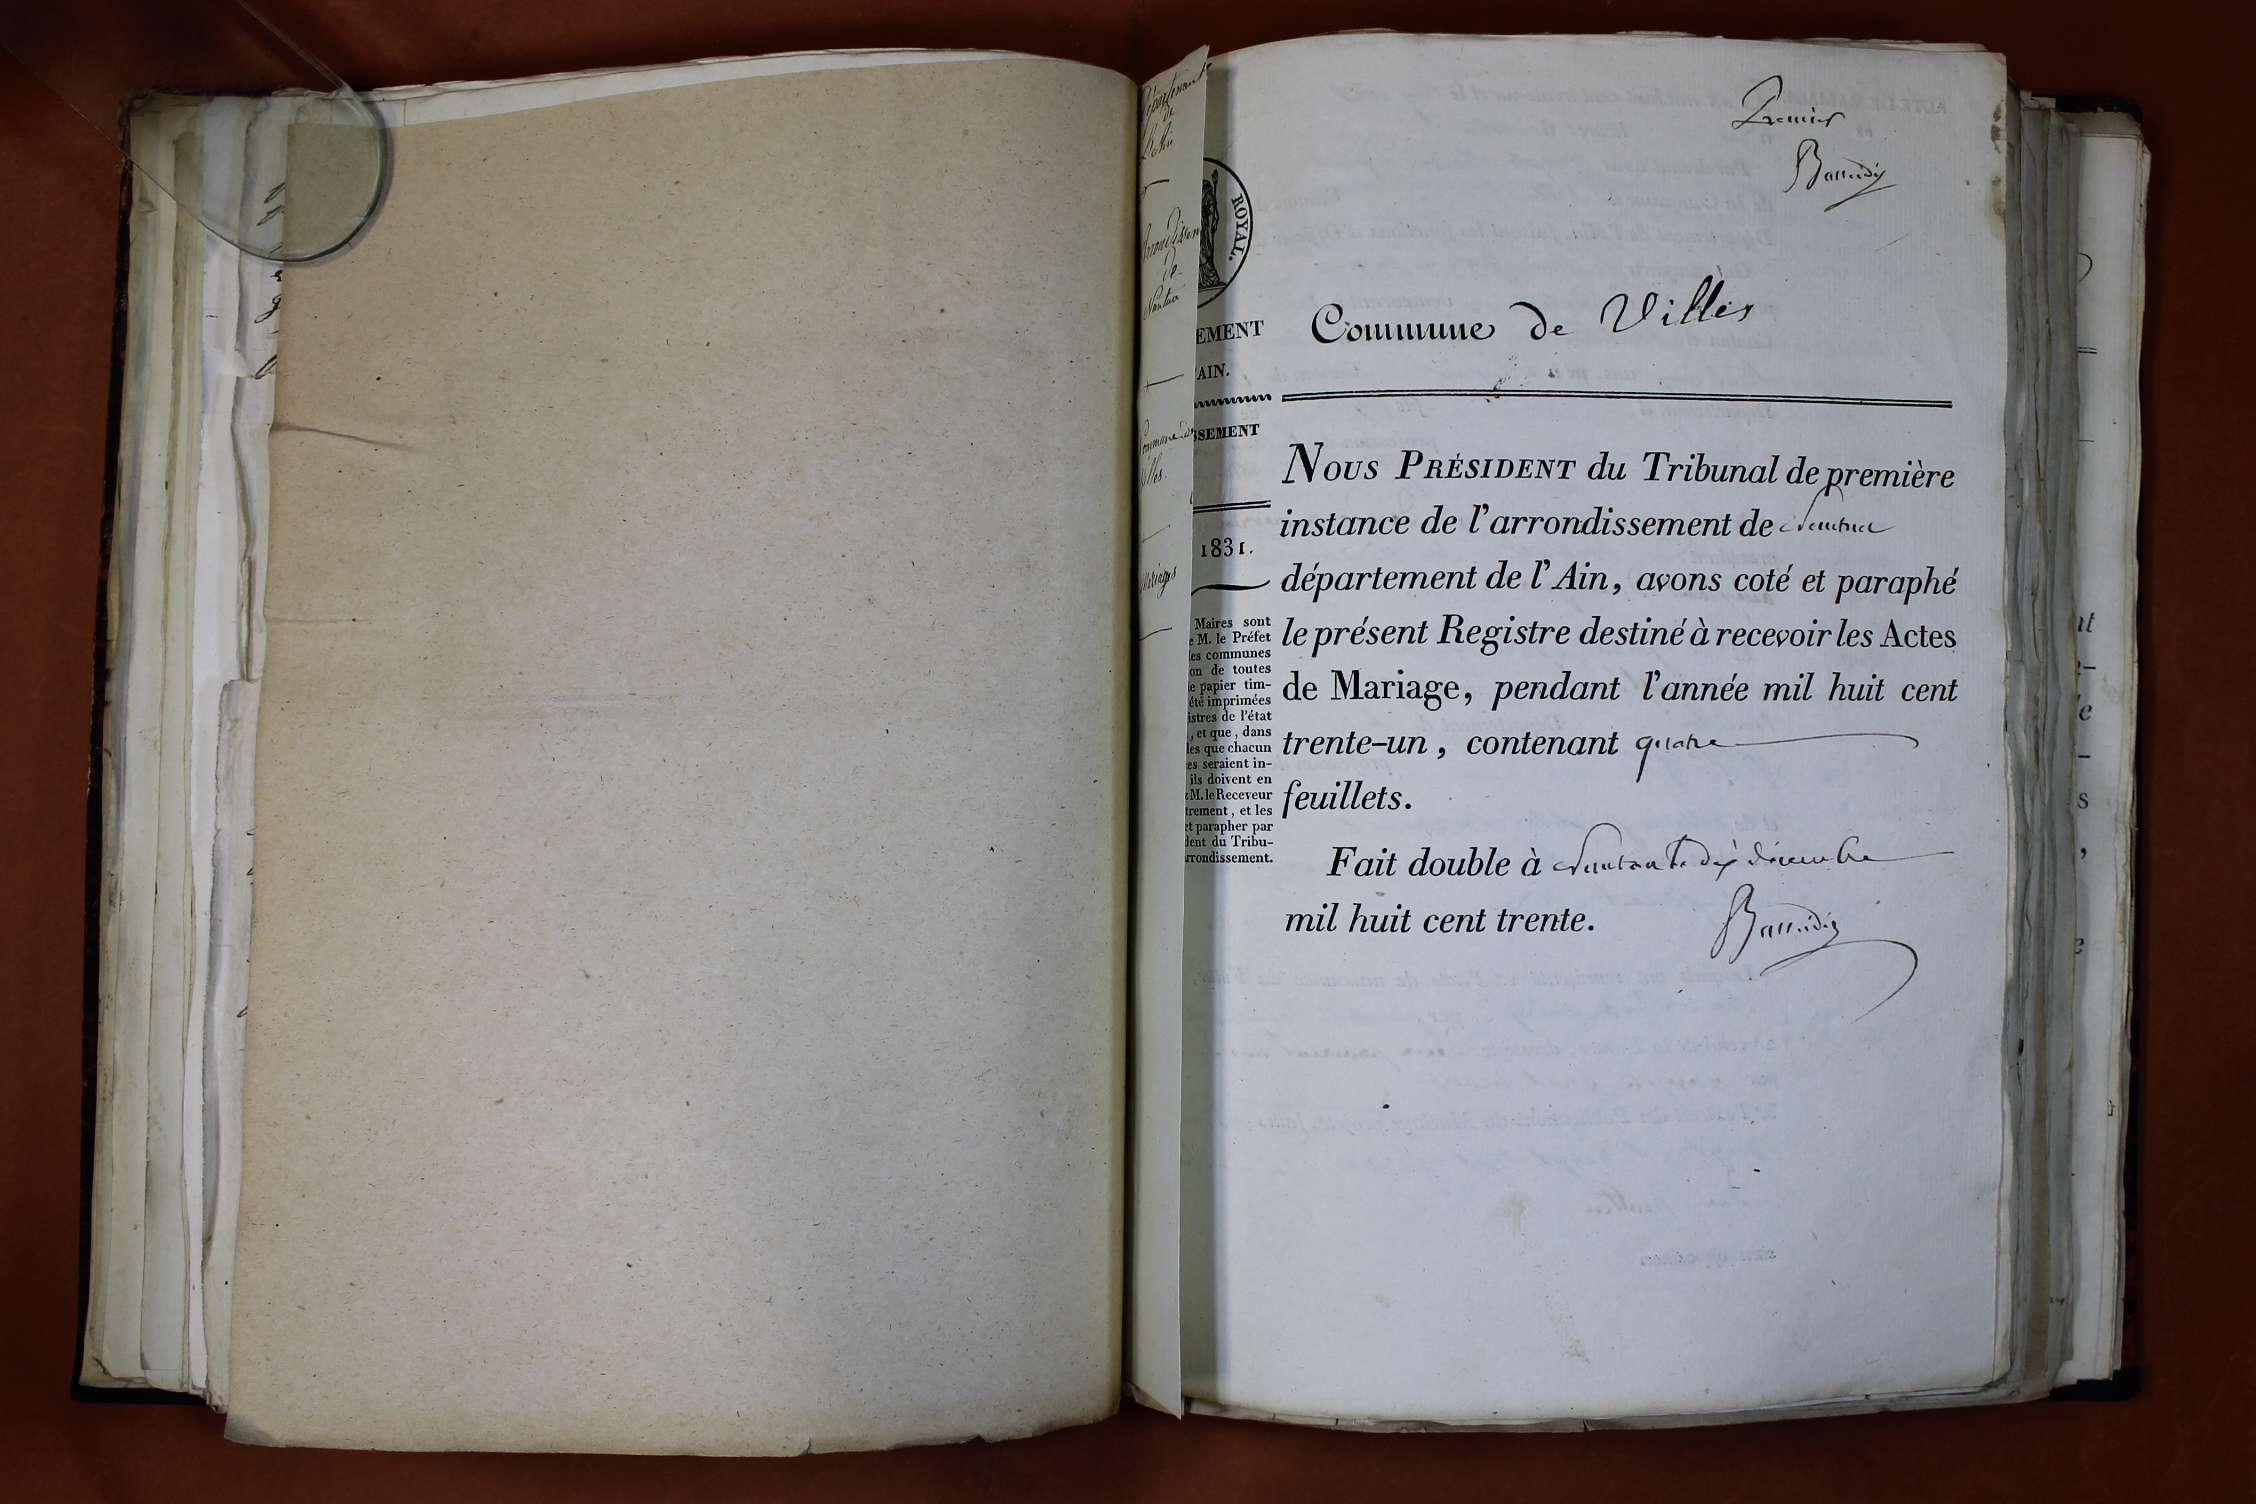 Premier
ROYAL.
Commune de Villes
EMENT
AIN.
SSEMENT
1831.
de
l'Ain
de
Nantua
Mariages
Maires sont
e M. le Préfet
les communes
on de toutes
e papier tim-
été imprimées
istres de l'état
, et que, dans
les que chacun
es seraient in-
ils doivent en
M. le Receveur
trement, et les
et parapher par
dent du Tribu-
rrondissement.
NOUS PRÉSIDENT du Tribunal de première
instance de l'arrondissement de Nantua
département de l'Ain, avons coté et paraphé
le présent Registre destiné à recevoir les Actes
de Mariage, pendant l'année mil huit cent
trente-un, contenant quatre
feuillets.
Fait double à Nantua le dix décembre
mil huit cent trente.